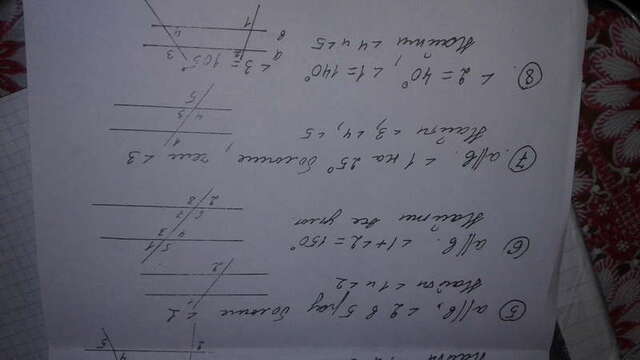 ⑤ a||b, <2 в 5 раз больше <1
Найти <1 и <2
1
2
⑥ a||b. <1+<2=150°
Найти все углы.
5 1
4 3
6 7
2 8
⑦ a||b. <1 на 25° больше, чем <3
Найти <3, <4, <5
1
4 3
5
⑧ <2=40°, <1=140° <3=105°
Найти <4 и <5
a
2
3
в
1
4